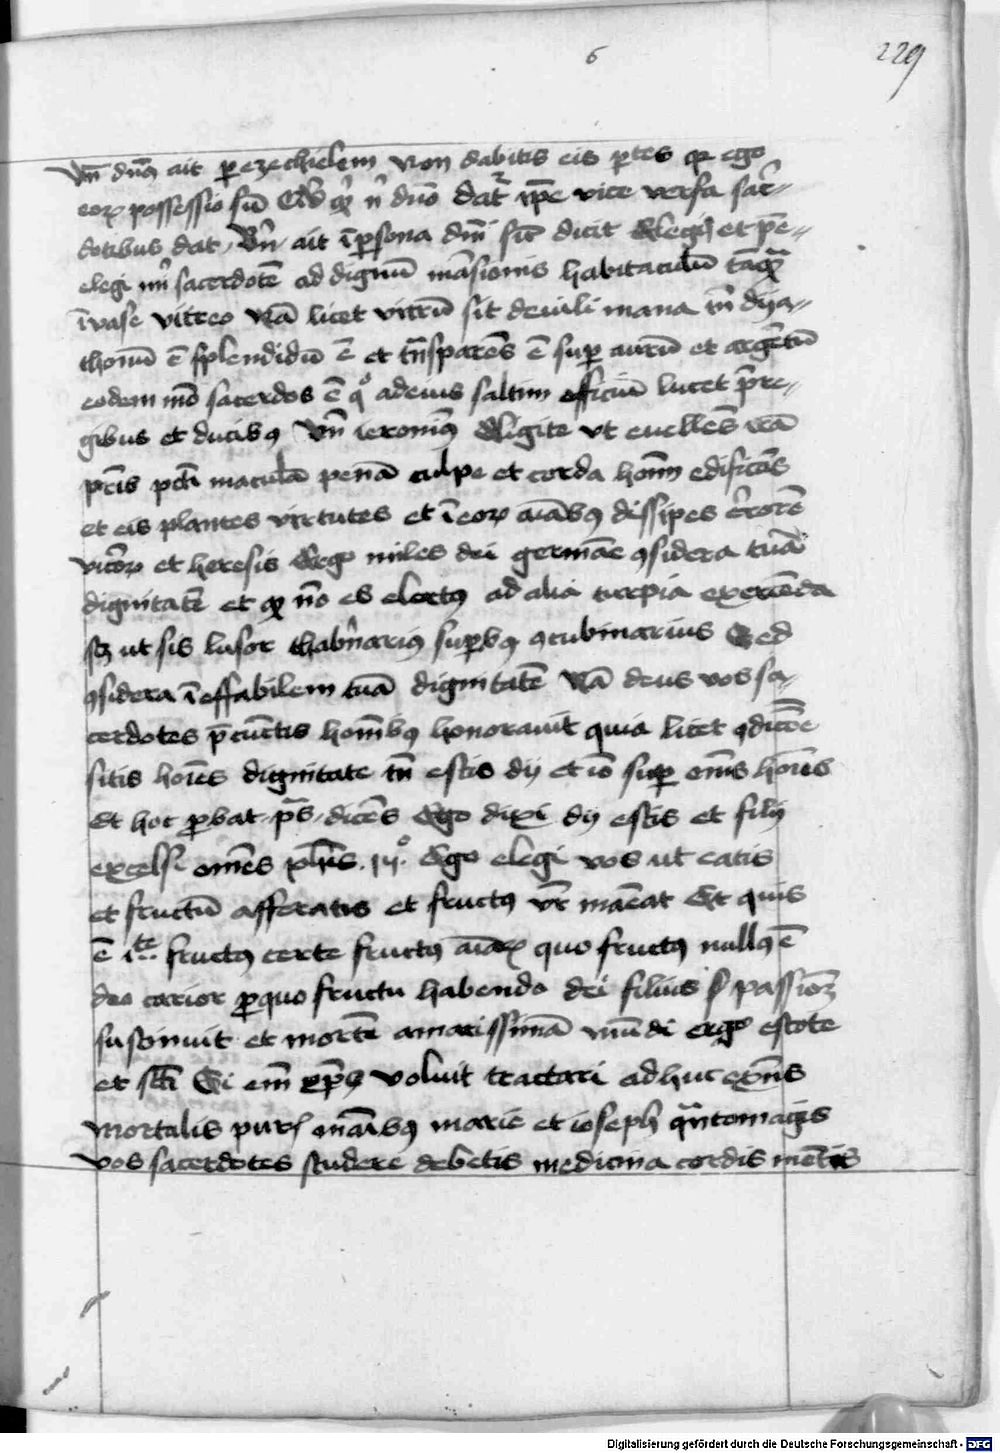 6
229
Vn̄ dn̄s ait per ezechielem Non dabitis eis ꝑtes qr ego
eoꝝ possessio sū dat ip̄e vice versa sac̄-
dotibus dat, Bn̄ ait ī ꝑsona dn̄i sic dicit Elegi et p̄e-
elegi mi sacerdotē ad dignū māsionis habitaculū tāqȝ
ī vase vitreo Nā licet vitrū sit de vili mana m̄ dya-
thonū ē splendidū ē et tn̄sparēs ē suꝑ aurū et argētū
eodem mō sacerdos ē qº ad eius saltim officiū lucet p̄ re-
gibus et ducibꝫ Vn̄ ieronimꝰ Eligite vt euellēs
pct̄i maculā penā culpe et corda hoīm edificēs
et eis plantes virtutes et ī eoꝝ aīabꝫ dissipes errorē
vicioꝝ et heresis Ergo miles dei germāe ꝯsidera tuā
dignitatē et qȝ nō es electꝰ ad alia turpia exercēda
sꝫ ut sis lusor thabn̄ariꝰ suꝑbꝰ ꝯcubinarius Sed
ꝯsidera īeffabilem tuā dignitatē Nā deus vos sa-
cerdotes p̄ cūctis homībꝫ honorauit quia licet ꝯdicōe
sitis hoīes dignitate tn̄ estis dij et iō suꝑ om̄s hoīes
Et hoc ꝓbat p̄s dicēs Ego dixi dij estis et filij
excelsi om̄es 1ijº. Ego elegi vos ut eatis
et fructū afferatis et fructꝰ vr̄ maneat Et quis
ē iste fructꝰ certe fructꝰ aīaꝝ quo fructꝰ nullꝰ ē
deo carior ꝓ quo fructu habendo dei filius passionē
sustinuit et mortē amarissimā mūdi ergo estote
et sc̄ti Si em̄ xp̄s voluit tractari adhuc exn̄s
mortalis puris manibꝫ marie et ioseph quāto magis
vos sacerdotes studere debetis medicina cordis mentis
Digitalisierung gefördert durch die Deutsche Forschungsgemeinschaft - DFG